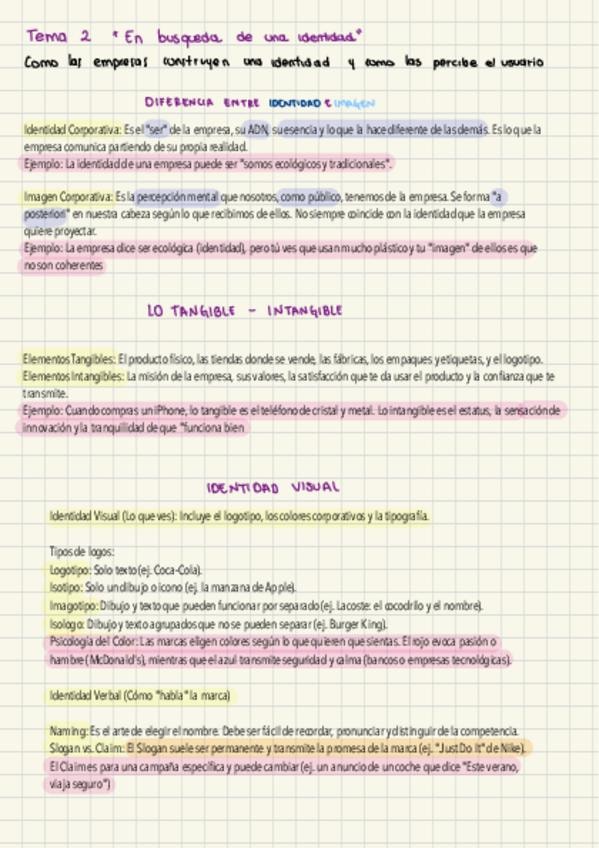 Tema 2 "En busqueda de una identidad"
Como las empresas construyen una identidad y como las percibe el usuario
DIFERENCIA ENTRE IDENTIDAD E IMAGEN
Identidad Corporativa: Es el "ser" de la empresa, su ADN, su esencia y lo que la hace diferente de las demás. Es lo que la
empresa comunica partiendo de su propia realidad.
Ejemplo: La identidad de una empresa puede ser "somos ecológicos y tradicionales".
Imagen Corporativa: Es la percepción mental que nosotros, como público, tenemos de la empresa. Se forma "a
posteriori" en nuestra cabeza según lo que recibimos de ellos. No siempre coincide con la identidad que la empresa
quiere proyectar.
Ejemplo: La empresa dice ser ecológica (identidad), pero tú ves que usan mucho plástico y tu "imagen" de ellos es que
no son coherentes
LO TANGIBLE - INTANGIBLE
Elementos Tangibles: El producto físico, las tiendas donde se vende, las fábricas, los empaques y etiquetas, y el logotipo.
Elementos Intangibles: La misión de la empresa, sus valores, la satisfacción que te da usar el producto y la confianza que te
transmite.
Ejemplo: Cuando compras un iPhone, lo tangible es el teléfono de cristal y metal. Lo intangible es el estatus, la sensación de
innovación y la tranquilidad de que "funciona bien
IDENTIDAD VISUAL
Identidad Visual (Lo que ves): Incluye el logotipo, los colores corporativos y la tipografía.
Tipos de logos:
Logotipo: Solo texto (ej. Coca-Cola).
Isotipo: Solo un dibujo o icono (ej. la manzana de Apple).
Imagotipo: Dibujo y texto que pueden funcionar por separado (ej. Lacoste: el cocodrilo y el nombre).
Isologo: Dibujo y texto agrupados que no se pueden separar (ej. Burger King).
Psicología del Color: Las marcas eligen colores según lo que quieren que sientas. El rojo evoca pasión o
hambre (McDonald's), mientras que el azul transmite seguridad y calma (bancos o empresas tecnológicas).
Identidad Verbal (Cómo "habla" la marca)
Naming: Es el arte de elegir el nombre. Debe ser fácil de recordar, pronunciar y distinguir de la competencia.
Slogan vs. Claim: El Slogan suele ser permanente y transmite la promesa de la marca (ej. "Just Do It" de Nike).
El Claim es para una campaña específica y puede cambiar (ej. un anuncio de un coche que dice "Este verano,
viaja seguro")